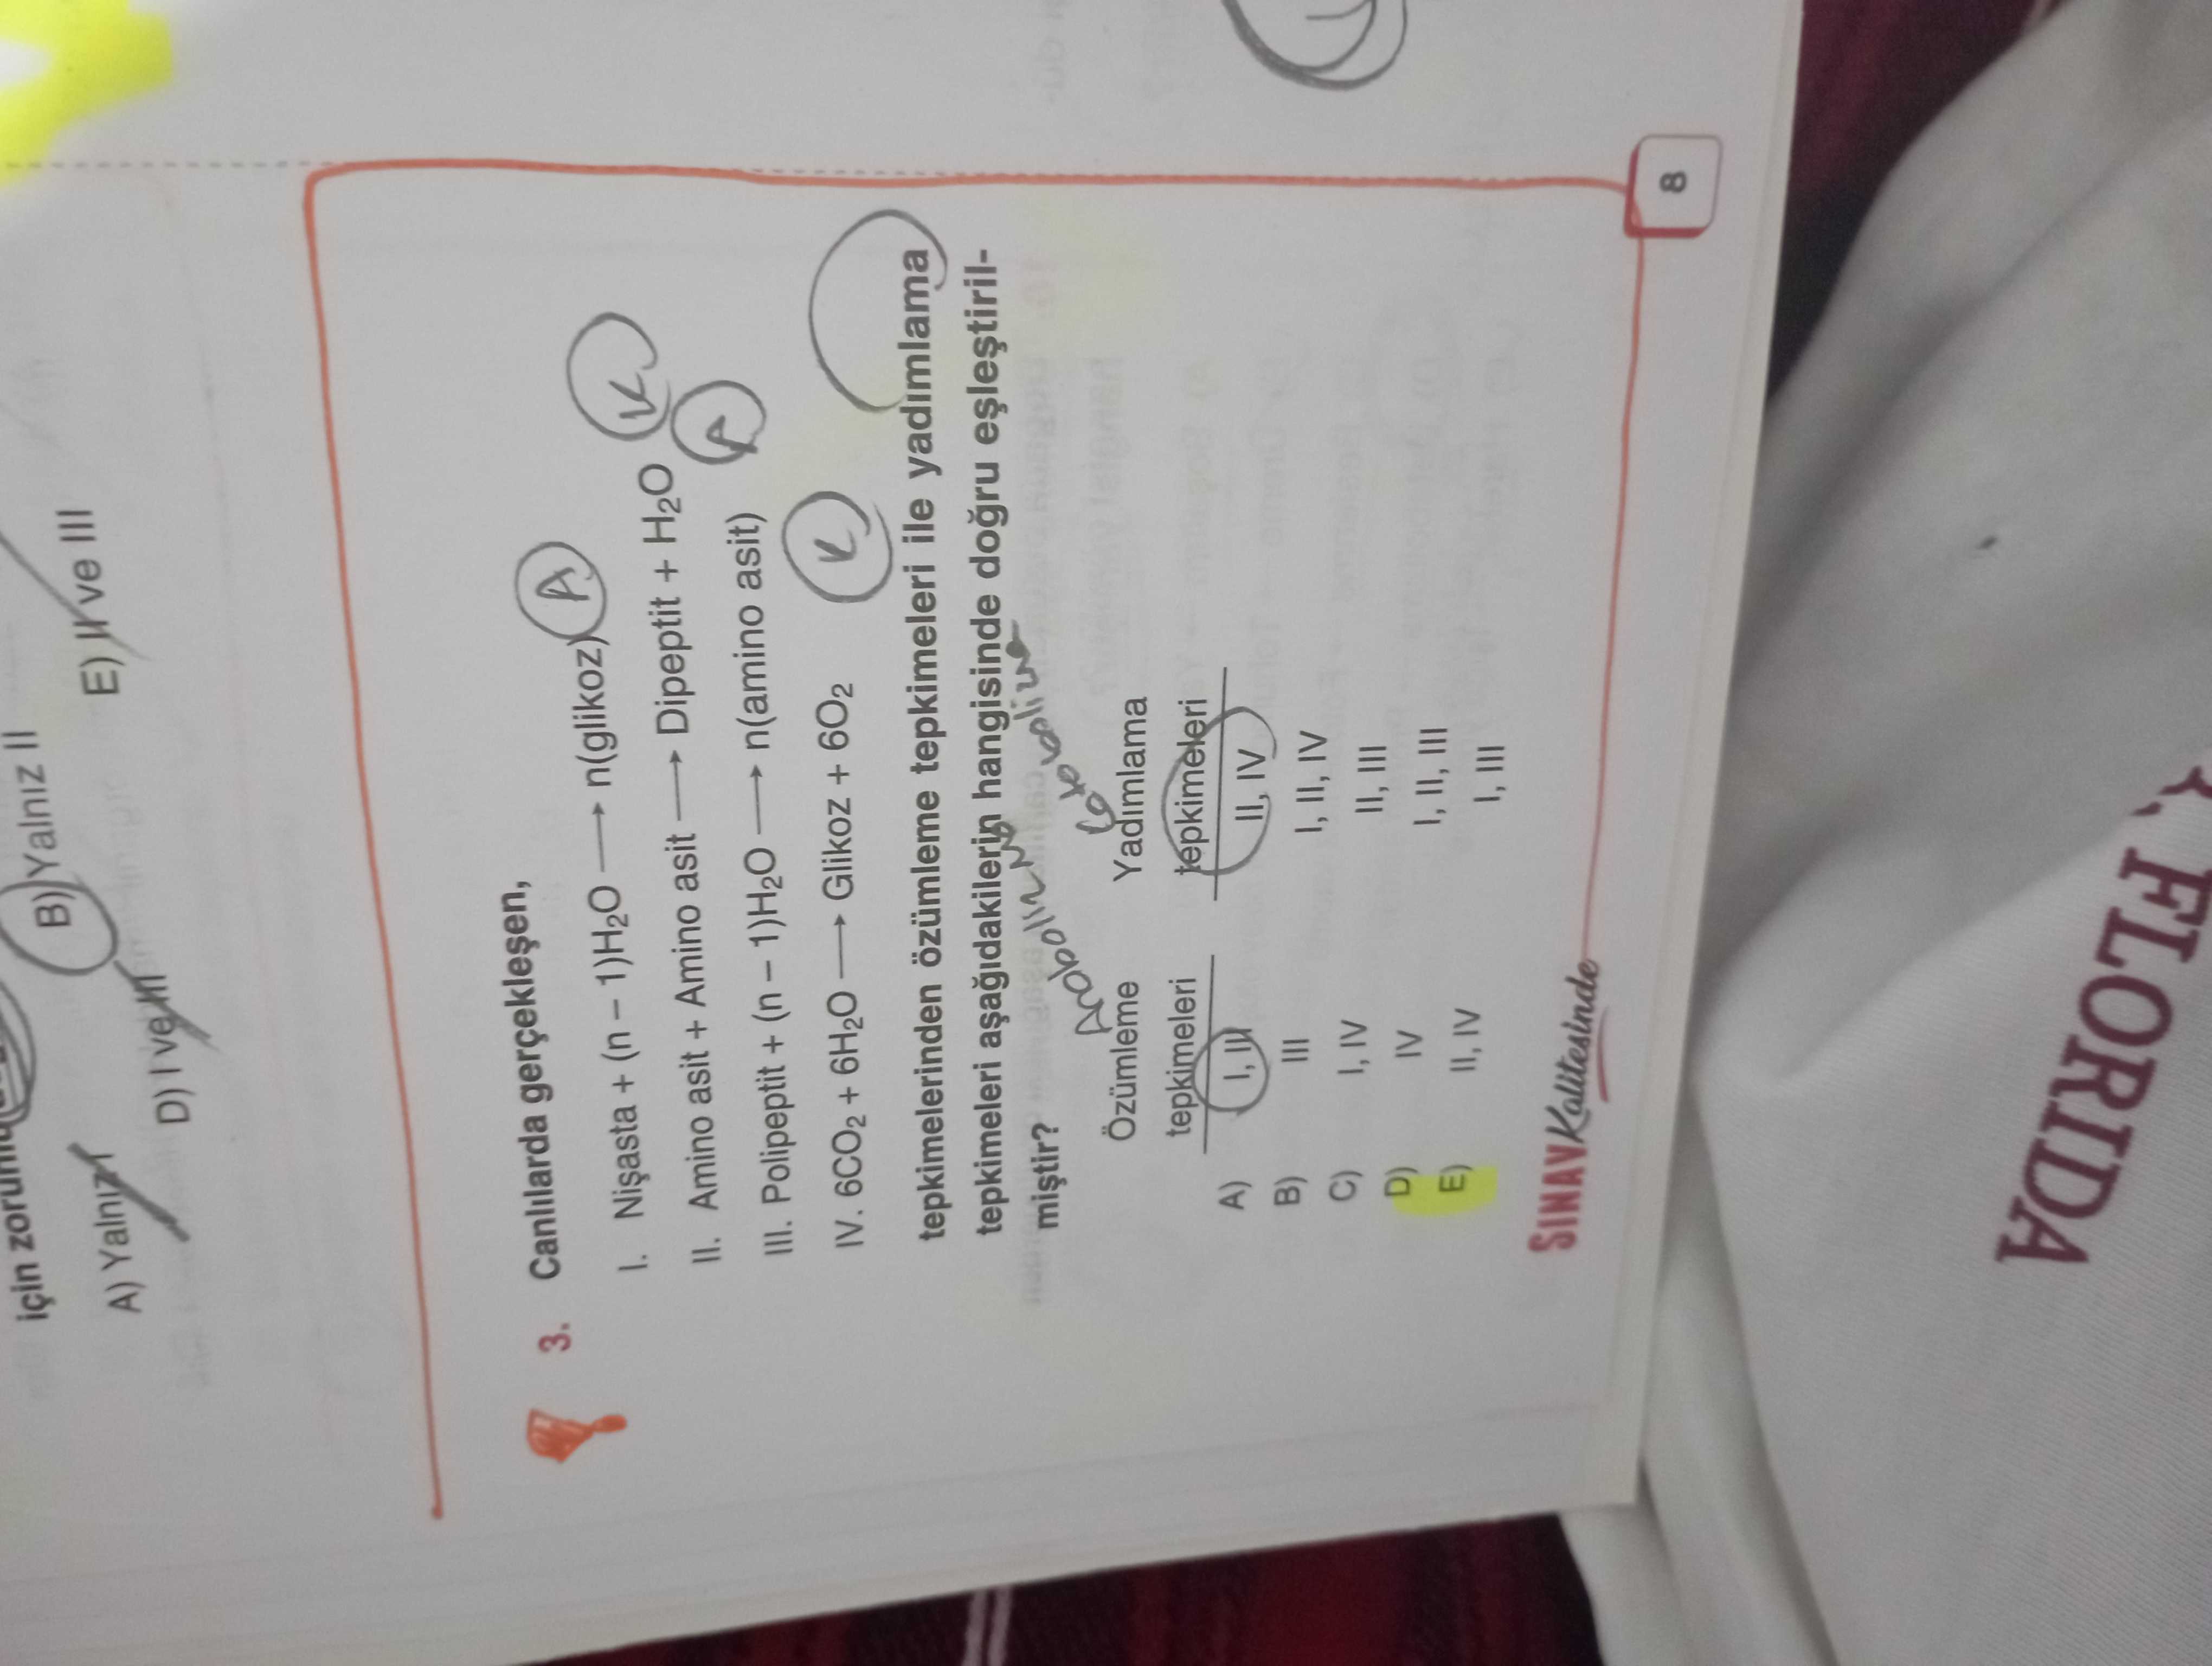 için zorunlu
A) Yalnız I
B) Yalnız II
D) I ve III
E) II ve III
3. Canlılarda gerçekleşen,
I. Nişasta + (n – 1)H₂O → n(glikoz) A
II. Amino asit + Amino asit → Dipeptit + H₂O K
III. Polipeptit + (n – 1)H₂O → n(amino asit) A
IV. 6CO₂ + 6H₂O → Glikoz + 6O₂ K
tepkimelerinden özümleme tepkimeleri ile yadımlama
tepkimeleri aşağıdakilerin hangisinde doğru eşleştiril-
miştir?
Özümleme Yadımlama
tepkimeleri tepkimeleri
A) I, II II, IV
B) III I, II, IV
C) I, IV II, III
D) IV I, II, III
E) II, IV I, III
SINAV Kalitesinde
8
FLORIDA